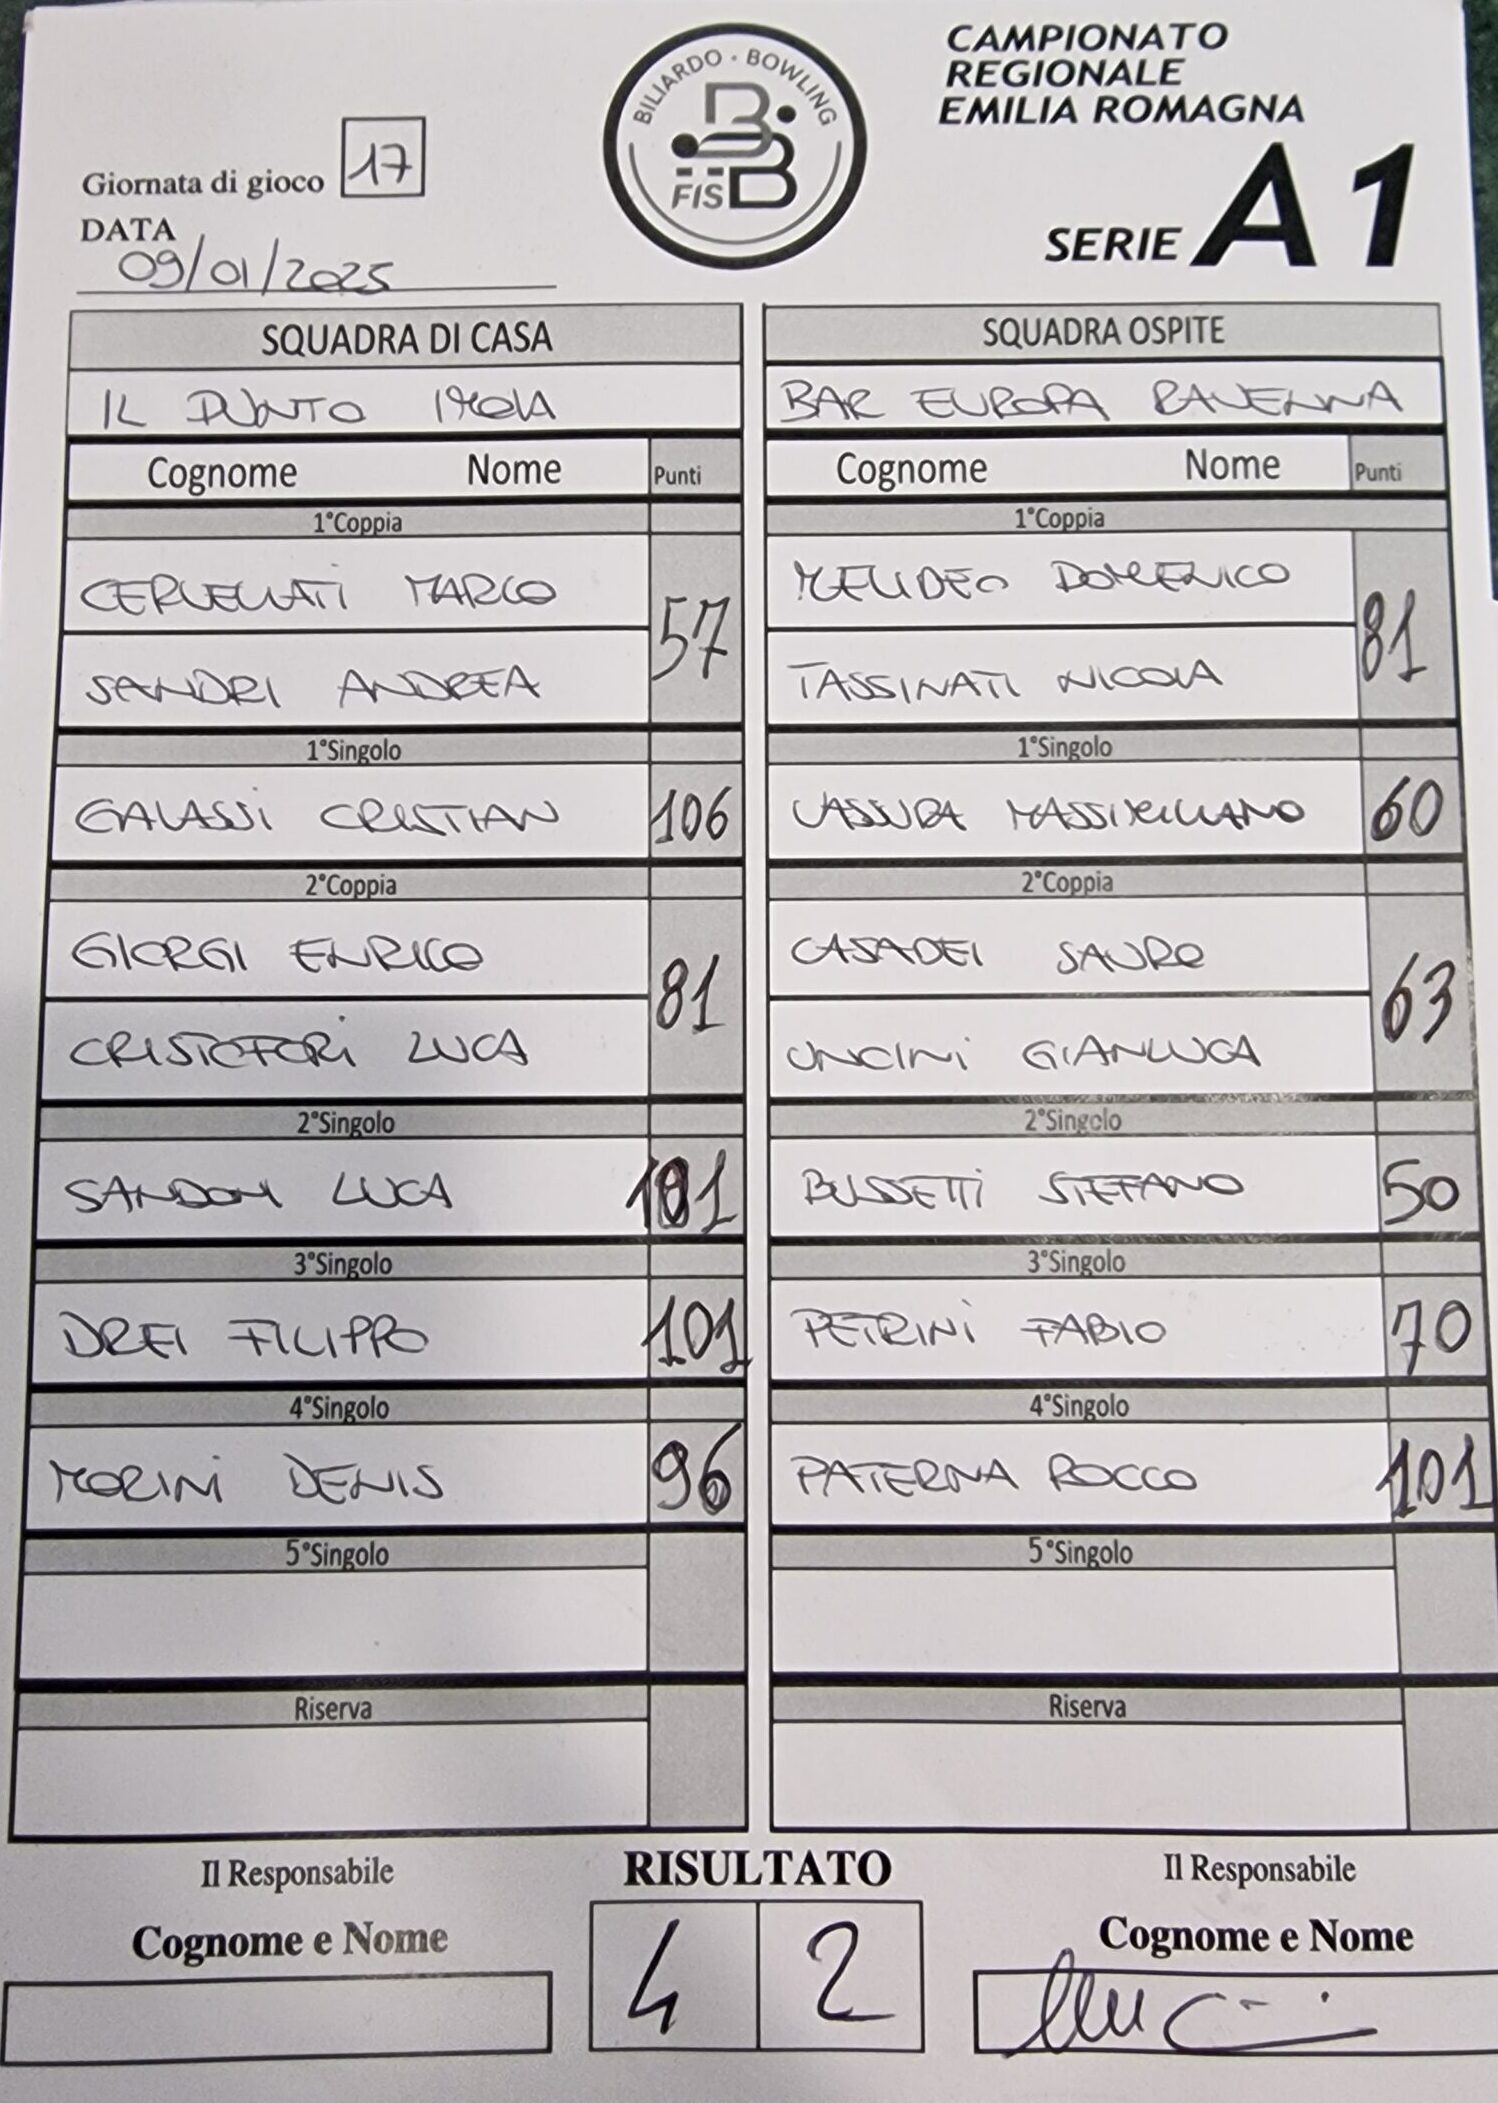 BILIARDO · BOWLING
FISBB
CAMPIONATO
REGIONALE
EMILIA ROMAGNA
SERIE A1
Giornata di gioco 17
DATA
09/01/2025
SQUADRA DI CASA SQUADRA OSPITE
IL PUNTO IMOLA BAR EUROPA RAVENNA
Cognome Nome Punti Cognome Nome Punti
1°Coppia 1°Coppia
CERVELLATI MARCO 57 MELIDEO DOMENICO 81
SANDRI ANDREA TASSINATI NICOLA
1°Singolo 1°Singolo
GALASSI CRISTIAN 106 VASSURA MASSIMILIANO 60
2°Coppia 2°Coppia
GIORGI ENRICO 81 CASADEI SAURO 63
CRISTOFORI LUCA UNCINI GIANLUCA
2°Singolo 2°Singolo
LUCA 101 BUSSETTI STEFANO 50
3°Singolo 3°Singolo
DREI FILIPPO 101 PETRINI FABIO 70
4°Singolo 4°Singolo
MORINI DENIS 96 PATERNA ROCCO 101
5°Singolo 5°Singolo
Riserva Riserva
Il Responsabile RISULTATO Il Responsabile
Cognome e Nome 4 2 Cognome e Nome